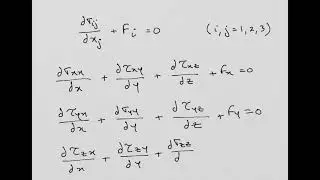 ∂σij/∂xj + Fi = 0 (i, j = 1, 2, 3)
∂σxx/∂x + ∂τxy/∂y + ∂τxz/∂z + Fx = 0
∂τyx/∂x + ∂σyy/∂y + ∂τyz/∂z + Fy = 0
∂τzx/∂x + ∂τzy/∂y + ∂σzz/∂